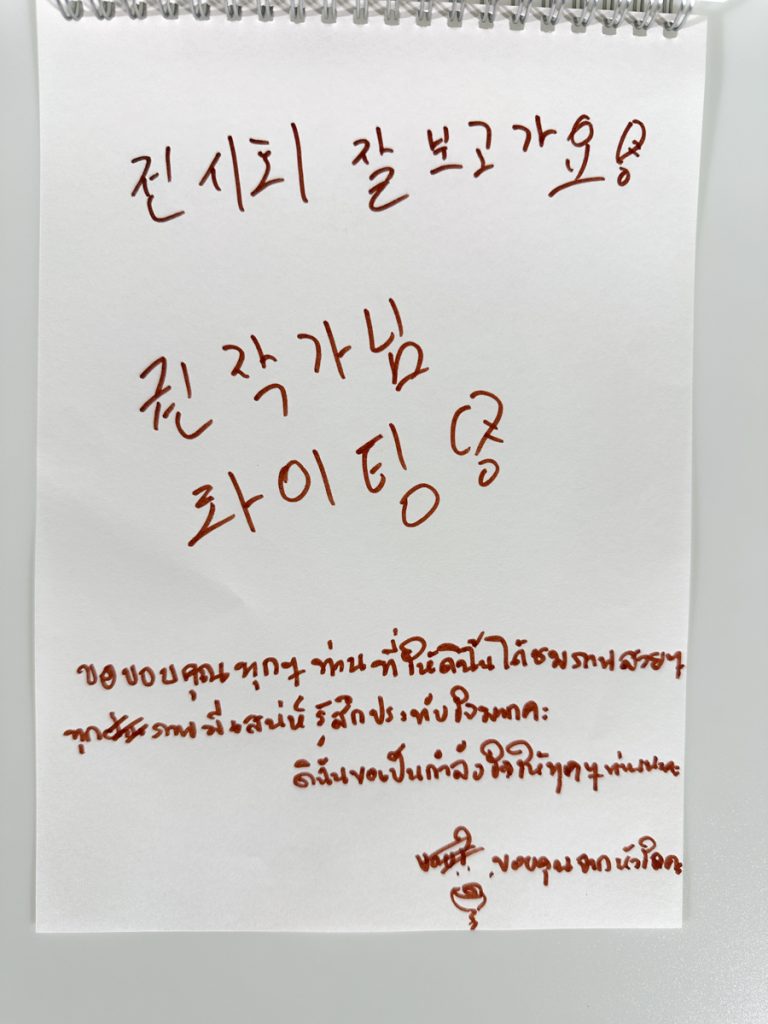 전시회 잘 보고 가요
작가님
화이팅
ขอขอบคุณทุกๆ ท่านที่ให้ดิฉันได้ชมภาพสวยๆ
ทุกภาพมีเสน่ห์ รู้สึกประทับใจมากคะ
ดิฉันขอเป็นกำลังใจให้ทุกๆ ท่านนะคะ
ขอบคุณจากหัวใจคะ